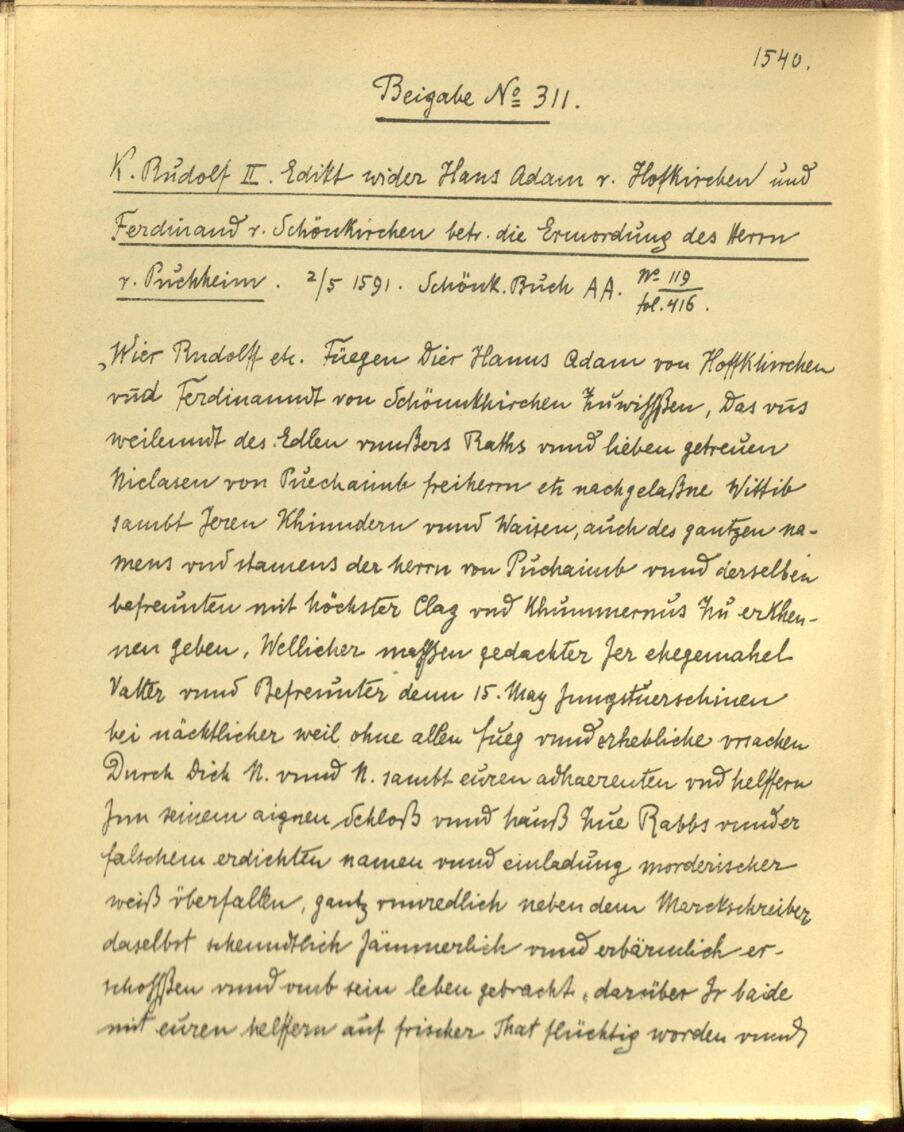 1540.
Beigabe No 311.
K. Rudolf II. Edikt wider Hans Adam v. Hofkirchen und
Ferdinand v. Schönkirchen betr. die Ermordung des Herrn
v. Puchheim. 2/5 1591. Schönk. Buch AA. No 119
fol. 416.
„Wier Rudolff etc. Füegen Dier Hanns Adam von Hoffkhirchen
vnd Ferdinanndt von Schönnkhirchen Zuwißßen, Das vns
weilenndt des Edlen vnnßers Raths vnnd lieben getreuen
Niclasen von Puechaimb freiherrn etc nachgelaßne Wittib
sambt Jeren Khinndern vnnd Waisen, auch des gantzen na-
mens vnd stamens der herrn von Puchaimb vnnd derselben
befreunten mit höchster Clag vnd Khummernus Zu erkhen-
nen geben, Wellicher maßßen gedachter Jer ehegemahel
Vatter vnnd Befreunter denn 15. May Jungstuerschinen
bei nächtlicher weil ohne allen fueg vnnd erhebliche vrsachen
Durch Dich N. vnnd N. sambt euren adhaerenten vnd helffern
Jnn seinem aignen Schloß vnnd hauß Zue Rabbs vnnder
falschem erdichten namen vnnd einladung morderischer
weiß überfallen, gantz vnnredlich neben dem Marckschreiber
daselbst schenndtlich Jämmerlich vnnd erbärmlich er-
schoßßen vnnd vmb sein leben gebracht, darüber Jr baide
mit euren helffern auf frischer That flüchtig worden vnnd